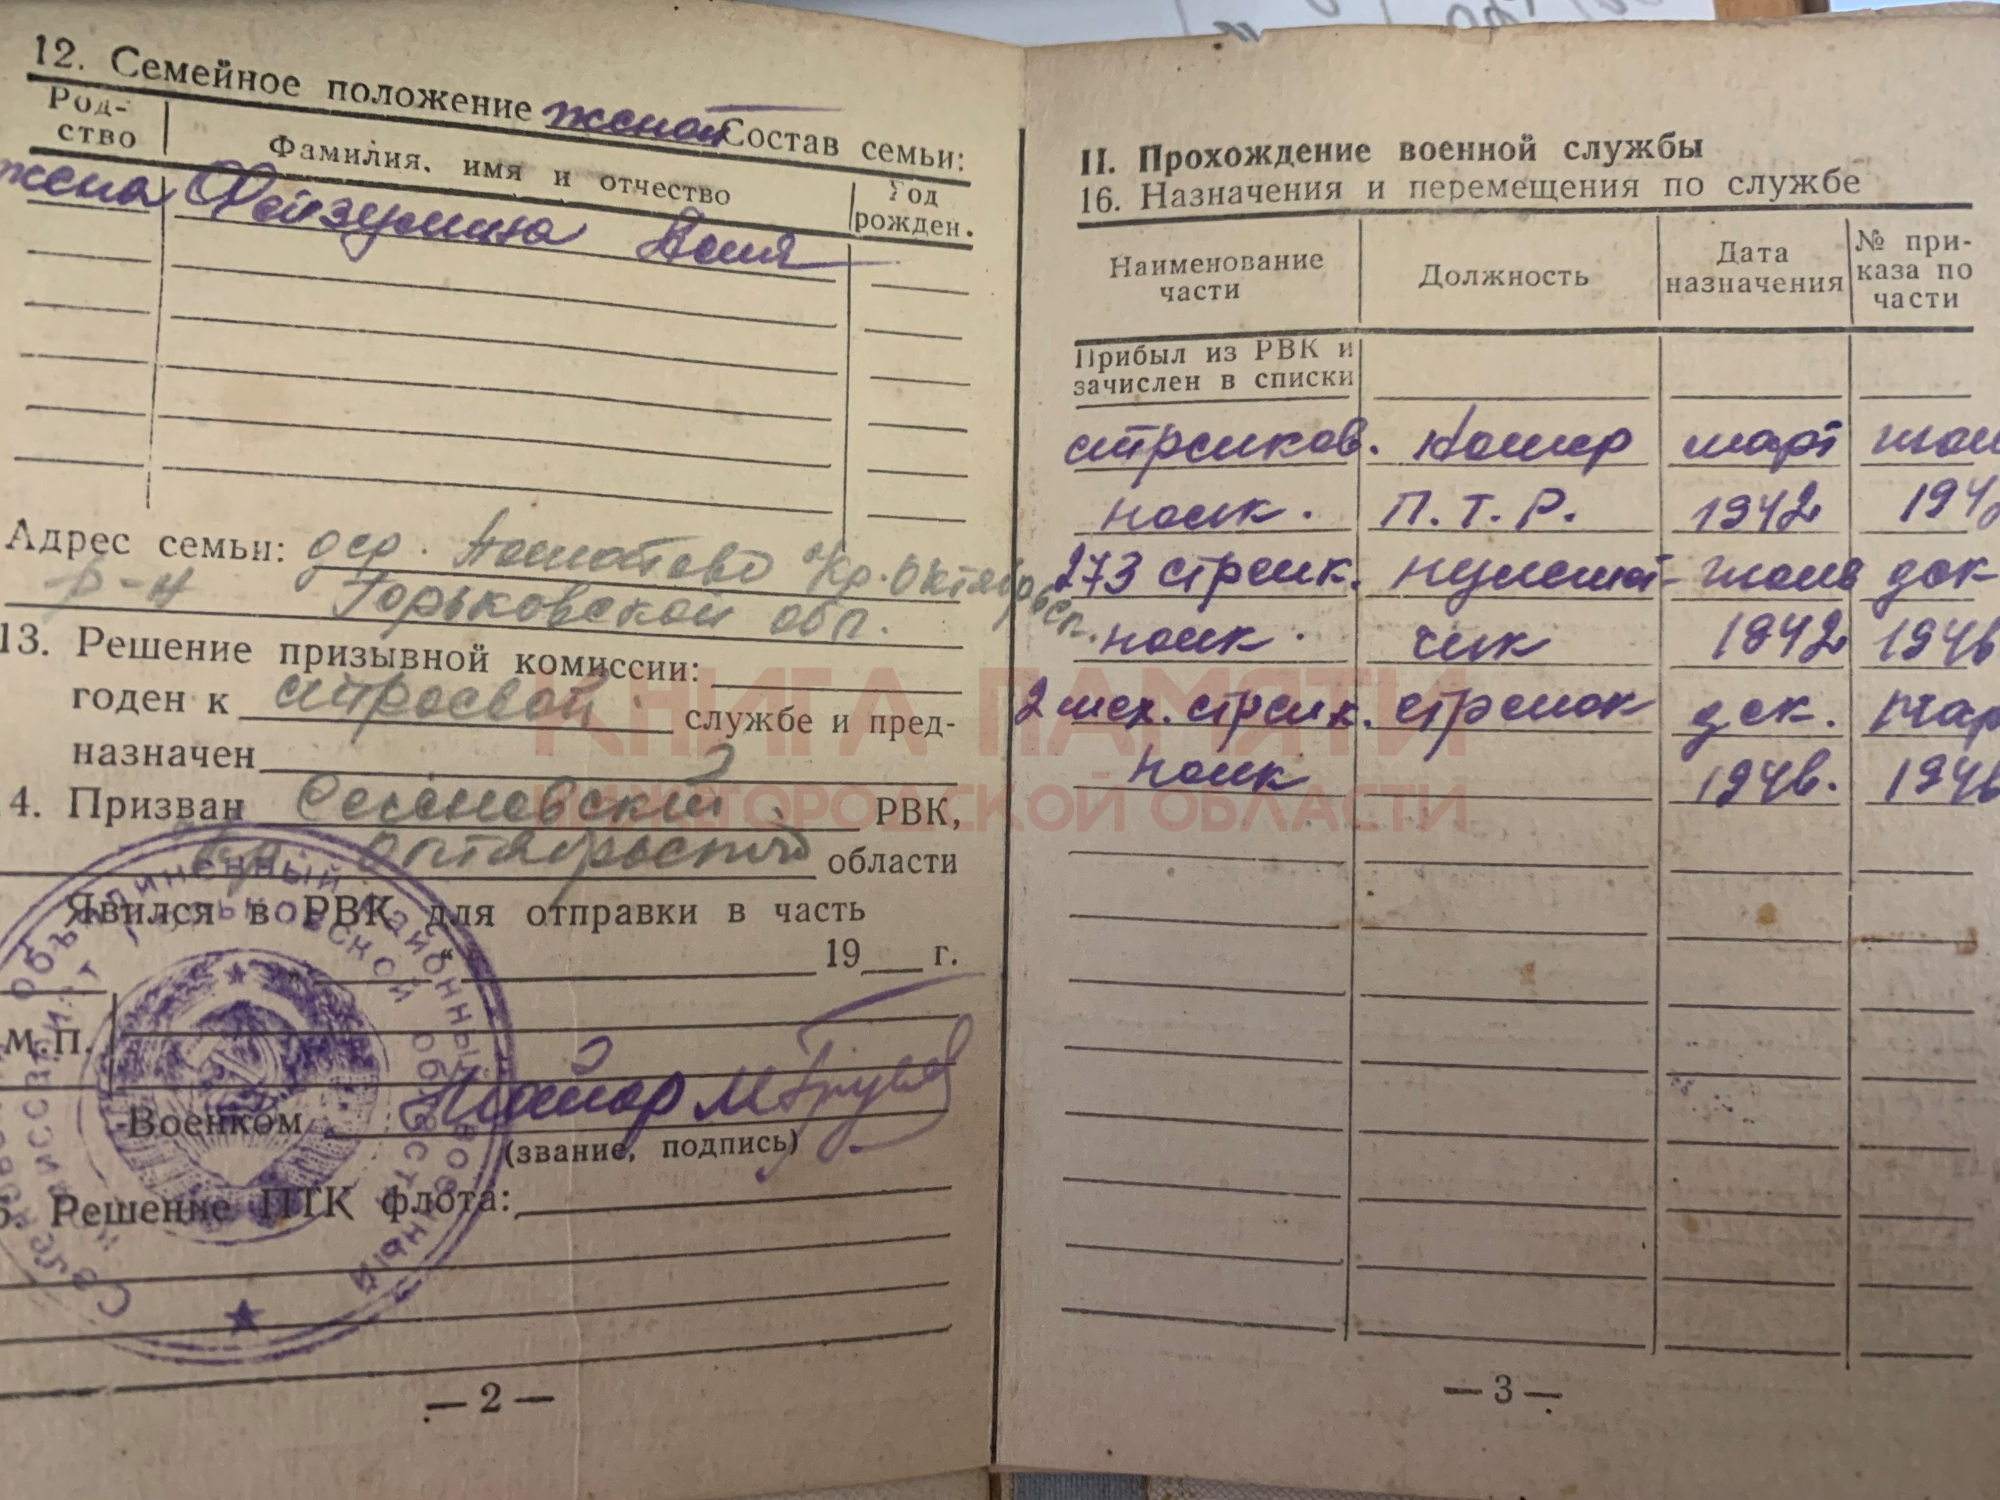 12. Семейное положение женат Состав семьи:
Род-
ство
Фамилия, имя и отчество
Год
рожден.
жена Фейзулина Асия
Адрес семьи: дер. Ашатово Кр. Октябрьск.
р-н Горьковской обл.
13. Решение призывной комиссии:
годен к строевой службе и пред-
назначен
4. Призван РВК,
Кр. Октябрьский области
Явился в РВК для отправки в часть
19 г.
М.П.
Военком майор
(звание, подпись)
5. Решение ПТК флота:
объединенный районный военный
комиссариат Горьковской области
— 2 —
II. Прохождение военной службы
16. Назначения и перемещения по службе
Наименование
части
Должность
Дата
назначения
№ при-
каза по
части
Прибыл из РВК и
зачислен в списки
стрелков. март
полк. П.Т.Р. 1942
273 стрелк. пулемет- дек
полк. чик 1942 1946
2 мех. стрелк. стрелок дек. мар
полк 1946. 1946
— 3 —
КНИГА ПАМЯТИ
НИЖЕГОРОДСКОЙ ОБЛАСТИ